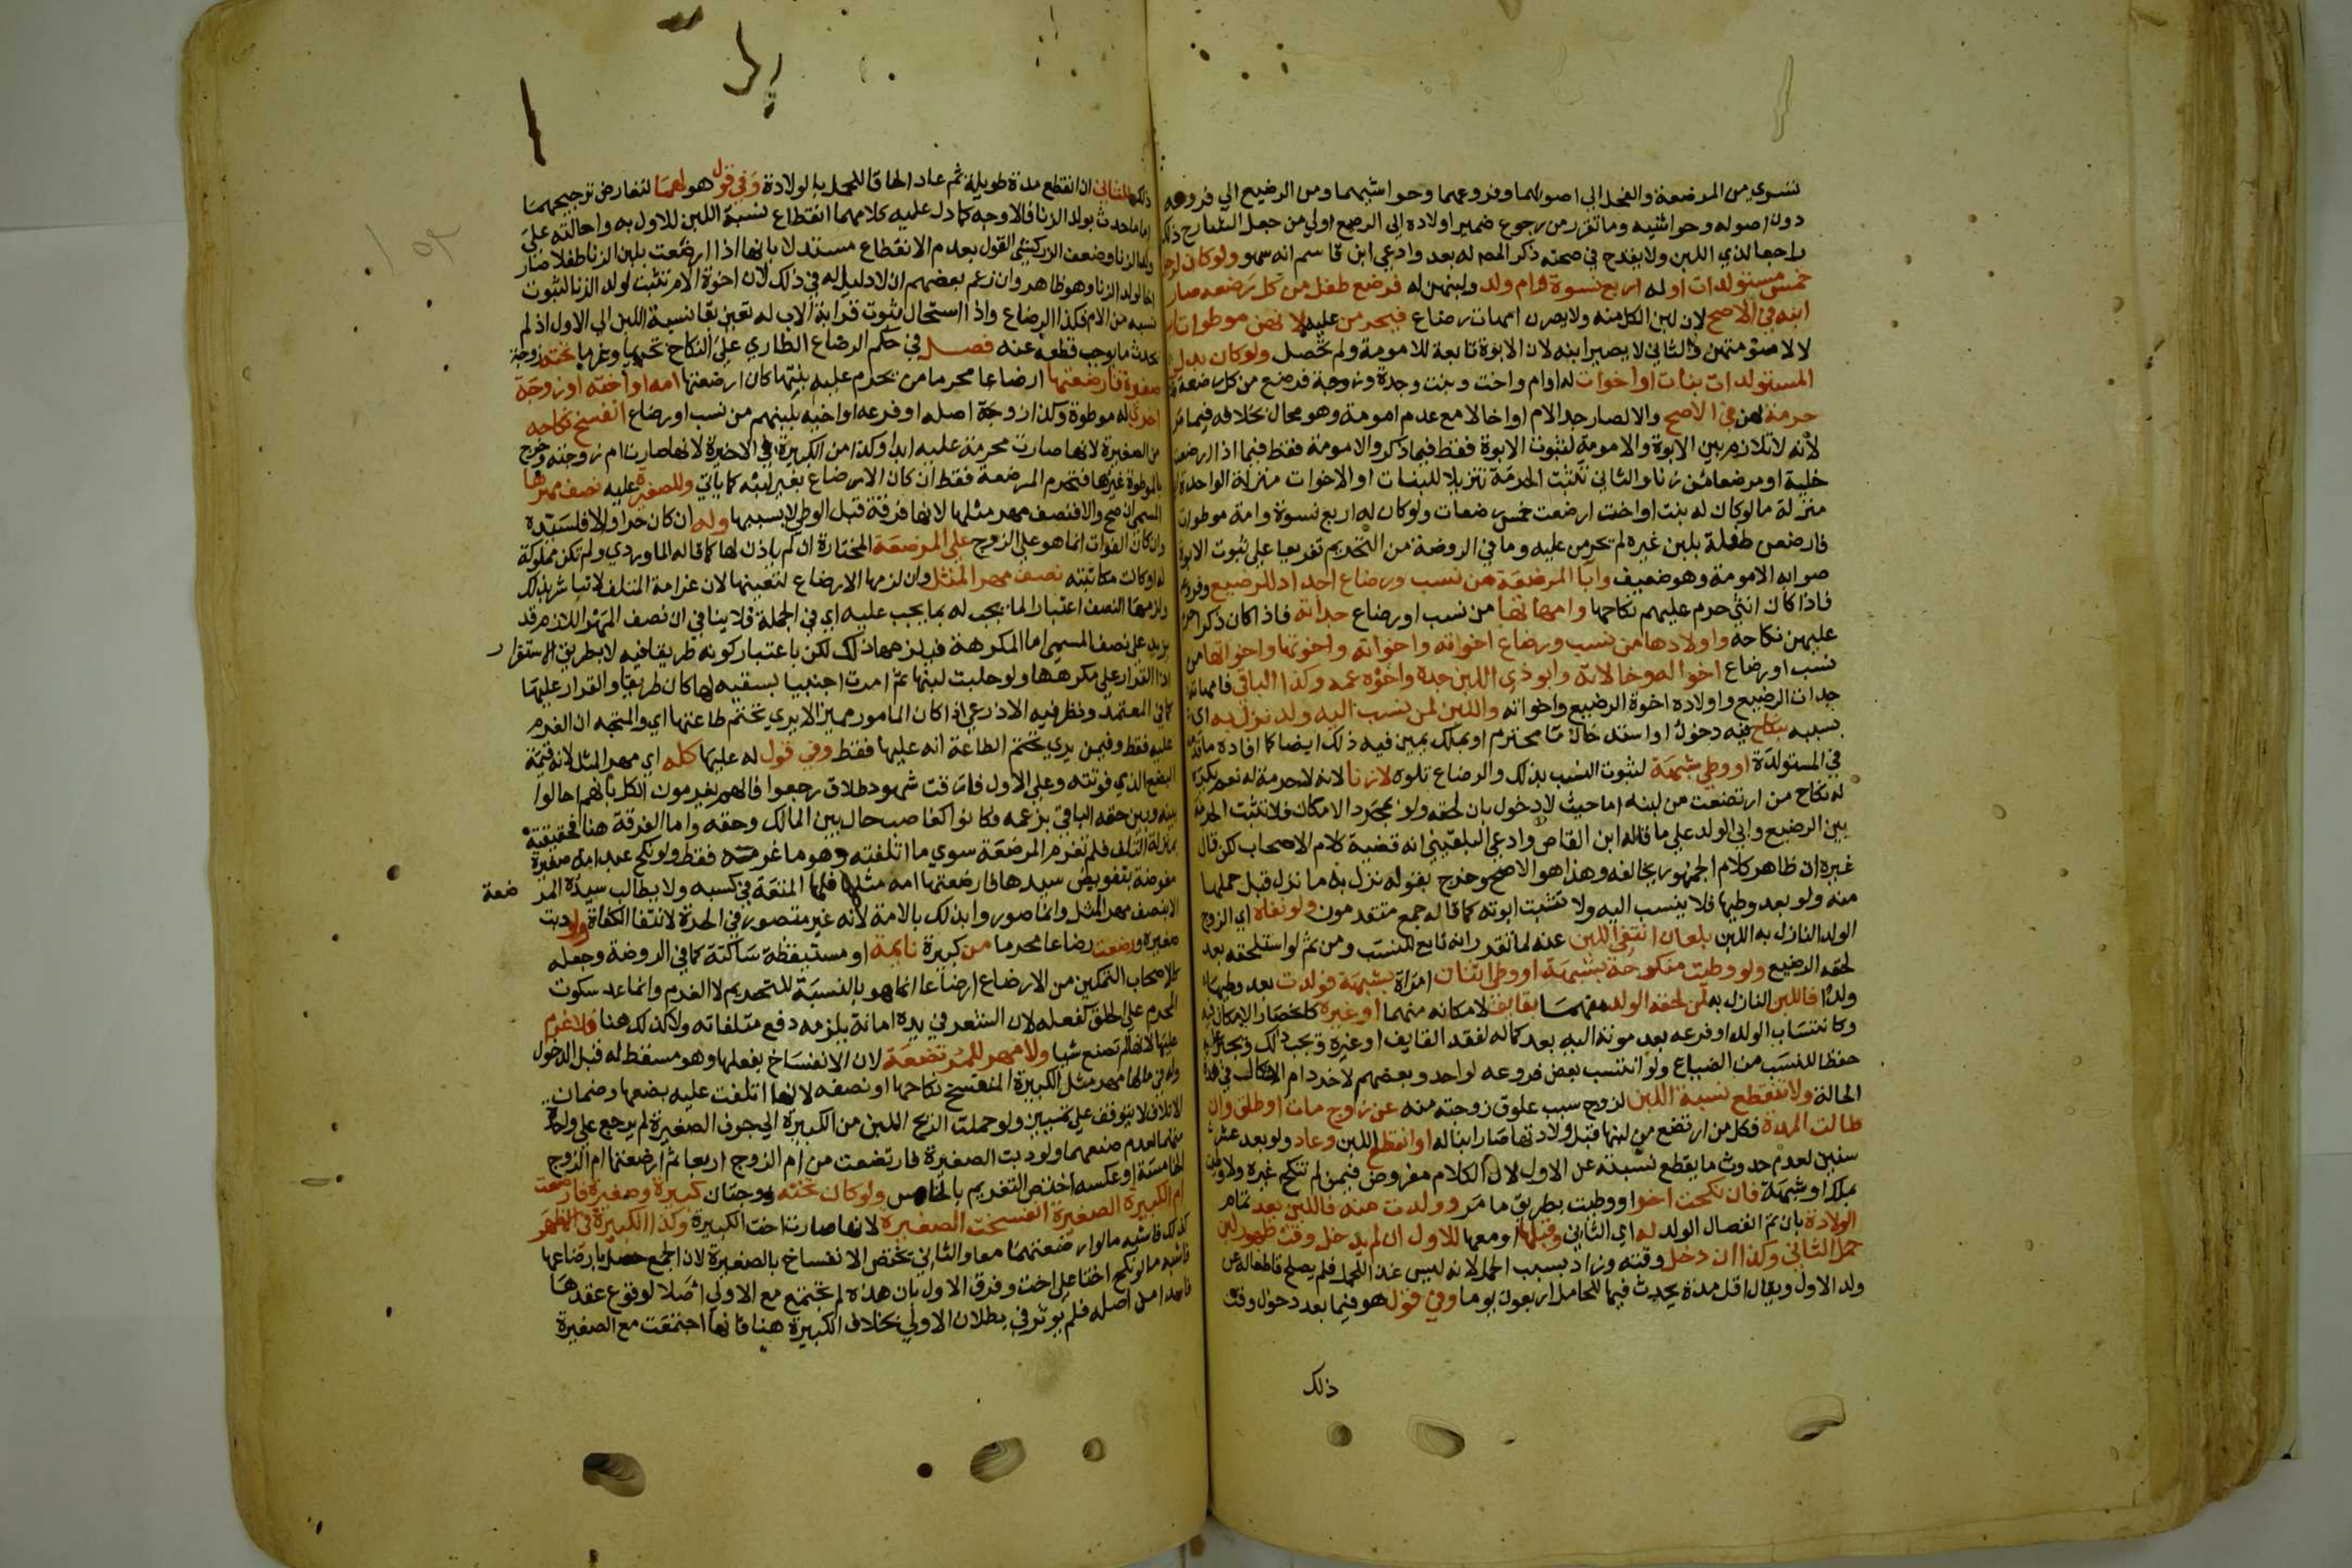 تسري من المرضعة والفحل الي اصولهما وفروعهما وحواشيهما ومن الرضيع الي فروعه
دون اصوله وحواشيه وما تقرر من رجوع ضمير اولاده الى الرضيع اولي من جعل الشارح ذلك
راجعا لذي اللبن ولا يقدح في صحته ذكر المصـ له بعد وادعي ابن قاسم انه سهو ولو كان لرجل
خمس مستولدات او له اربع نسوة وام ولد ولبنهن له فرضع طفل من كل رضعه صار
ابنه في الاصح لان لبن الكل منه ولا يصرن امهات رضاع فيحرمن عليه لانهن موطوات ابيه
لا لامومتهن والثاني لا يصير ابنه لان الابوة تابعة للامومة ولم تحصل ولو كان بدل
المستولدات بنات او اخوات له او ام واخت وبنت وجدة وزوجة فرضع من كل رضعة فلا
حرمة لهن في الاصح والا لصار جد الام او اخا لا مع عدم امومة وهو محال بخلافه فيما مر
لانه لا تلازم بين الابوة والامومة لثبوت الابوة فقط فيما ذكر والامومة فقط فيما اذا ارضعت
خلية او مرضعة من زنا والثاني تثبت الحرمة تنزيلا للبنات او الاخوات منزلة الواحدة
منزلة ما لو كان له بنت او اخت ارضعت خمس رضعات ولو كان له اربع نسوة وامة موطوات
فارضعن طفلة بلبن غيره لم يحرمن عليه وما في الروضة من التحريم تفريعا على ثبوت الابوة
صوابه الامومة وهو ضعيف وآبا المرضعة من نسب ورضاع اجداد للرضيع وفروعه
فاذا كان انثي حرم عليهم نكاحها وامهاتها من نسب او رضاع جداته فاذا كان ذكرا حرم
عليهن نكاحه واولادها من نسب ورضاع اخوته واخواته واخوتها واخواتها من
نسب او رضاع اخواله وخالاته وابو ذي اللبن جده واخوه عمه وكذا الباقي فامهاته
جدات الرضيع واولاده اخوة الرضيع واخواته واللبن لمن نسب اليه ولد نزل به اي
بسببه بنكاح فيه دخول او استدخال ما محترم او بملك يمين فيه ذلك ايضا كما افاده ما قدمه
في المستولدة او وطي شبهة لثبوت النسب بذلك والرضاع تلوه لا زنا لانه لا حرمة له نعم يكره
له نكاح من ارتضعت من لبنه اما حيث لا دخول بان لحقه ولد بمجرد الامكان فلا تثبت الحرمة
بين الرضيع وابي الولد علي ما قاله ابن القاص وادعي البلقيني انه قضية كلام الاصحاب لكن قال
غيره ان ظاهر كلام الجمهور يخالفه وهذا هو الاصح وخرج بقوله نزل به ما نزل قبل حملها
منه ولو بعد وطيها فلا ينسب اليه ولا تثبت ابوته كما قاله جمع متقدمون ولو نفاه اي الزوج
الولد النازل به اللبن بلعان انتفي اللبن عنه لما تقدر انه تابع للنسب ومن ثم لو استلحقه بعد
لحقه الرضيع ولو وطيت منكوحة بشبهة او وطي اثنان امراة بشبهة فولدت بعد وطيهما
ولدا فاللبن النازل به لمن لحقه الولد منهما بقايف لامكانه منهما او غيره كانحصار الامكان فيه
وكانتساب الولد او فرعه بعد موته اليه بعد كماله لفقد القايف او غيره ويجب ذلك ويجبر عليه
حفظا للنسب من الضياع ولو انتسب بعض فروعه لواحد وبعضهم لاخر دام الاشكال في هذه
الحالة ولا تنقطع نسبة اللبن لزوج سبب علوق زوجته منه عن زوج مات او طلق وان
طالت المدة فكل من ارتضع من لبنها قبل ولادتها صار ابنا له او انقطع اللبن وعاد ولو بعد عشر
سنين لعدم حدوث ما يقطع نسبته عن الاول لان الكلام مفروض فيمن لم تنكح غيره ولا وطيت
بملك او شبهة فان نكحت اخر او وطيت بطريق ما مر وولدت منه فاللبن بعد تمام
الولادة بان تم انفصال الولد له اي الثاني وقبلها او معها للاول ان لم يدخل وقت ظهور لبن
حمل الثاني وكذا ان دخل وقته وزاد بسبب الحمل لانه ليس غذا للحمل فلم يصلح قاطعا له عن
ولد الاول ويقال اقل مدة يحدث فيها للحامل اربعون يوما وفي قول هو فيما بعد دخول وقت
ذلك
ذلك للثاني ان انقطع مدة طويلة ثم عاد الحاقا للحمل بالولادة وفي قول هو لهما لتعارض ترجيحهما
اما ما حدث بولد الزنا فالاوجه كما دل عليه كلامهما انقطاع نسبة اللبن للاول به واحالته علي
ولد الزنا وضعف الزركشي القول بعدم الانقطاع مستدلا بانها اذا ارضعت بلبن الزنا طفلا صار
اخا لولد الزنا وهو ظاهر وان زعم بعضهم ان لا دليل له في ذلك لان اخوة الام تثبت لولد الزنا لثبوت
نسبه من الام فكذا الرضاع واذا استحال ثبوت قرابة الاب له تعين بقا نسبة اللبن الي الاول اذ لم
يحدث ما يوجب قطعه عنه فصـل في حكم الرضاع الطاري علي النكاح تحريما وغرما تحته زوجة
صغيرة فارضعتها ارضاعا محرما من تحرم عليه بنتها كان ارضعتها امه او اخته او زوجة
اخري له موطوة وكذا زوجة اصله او فرعه او اخيه بلبنهم من نسب او رضاع انفسخ نكاحه
من الصغيرة لانها صارت محرمة عليه ابدا وكذا من الكبيرة في الاخيرة لانها صارت ام زوجته وخرج
بالموطوة غيرها فتحرم المرضعة فقط ان كان الارضاع بغير لبنه كما ياتي وللصغيرة عليه نصف مهرها
المسمي ان صح والا فنصف مهر مثلها لانها فرقة قبل الوطي لا بسببها وله ان كان حرا والا فلسيده
وان كان الفوات انما هو علي الزوج علي المرضعة المختارة ان لم ياذن لها كما قاله الماوردي ولم تكن مملوكة
له او كانت مكاتبته نصف مهر المثل وان لزمها الارضاع لتعينها لان غرامة المتلف لا تتاثر بذلك
ولزمها النصف اعتبارا لما يجب له بما يجب عليه اي في الجملة فلا ينافي ان نصف المهر اللازم قد
يزيد علي نصف المسمي اما المكرهة فيلزمها ذلك لكن باعتبار كونه طريقا فيه لا بطريق الاستقرار
اذ القرار علي مكرهها ولو حلبت لبنها ثم امرت اجنبيا بسقيه لها كان طريقا والقرار عليها
كما في المعتمد ونظر فيه الاذرعي اذا كان المامور مميزا لا يري تحتم طاعتها اي والمتجه ان الغرم
عليه فقط وفيمن يري تحتم الطاعة انه عليها فقط وفي قول له عليها كله اي مهر المثل لانه قيمة
البضع الذي فوتته وعلي الاول فارقت شهود طلاق رجعوا فانهم يغرمون الكل بانهم احالوا
بينه وبين حقه الباقي بزعمه فكانوا كغاصب حال بين المالك وحقه واما الفرقة هنا فحقيقته
بمنزلة التلف فلم تغرم المرضعة سوي ما اتلفته وهو ما غرمه فقط ولو نكح عبد امة صغيرة
مفوضة بتفويض سيدها فارضعتها امه مثلا فلها المتعة في كسبه ولا يطالب سيده المرضعة
الا بنصف مهر المثل وانما صوروا بذلك بالامة لانه غير متصور في الحرة لانتفا الكفاة ولو دبت
صغيرة ورضعت رضاعا محرما من كبيرة نايمة او مستيقظة ساكتة كما في الروضة وجعله
كالاصحاب التمكين من الارضاع ارضاعا انما هو بالنسبة للتحريم لا الغرم وانما عد سكوت
المحرم علي الحلق كفعله لان الشعر في يده امانة يلزمه دفع متلفاته ولا كذلك هنا فلا غرم
عليها لانها لم تصنع شيا ولا مهر للمرتضعة لان الانفساخ بفعلها وهو مسقط له قبل الدخول
وله في مالها مهر مثل الكبيرة المنفسخ نكاحها او نصفه لانها اتلفت عليه بضعها وضمان
الاتلاف لا يتوقف علي تمييز ولو حملت الريح اللبن من الكبيرة الي جوف الصغيرة لم يرجع علي واحدة
منهما لعدم صنعهما ولو دبت الصغيرة فارتضعت من ام الزوج اربعا ثم ارضعتها ام الزوج
الخامسة او عكسه اختص التغريم بالخامس ولو كان تحته زوجتان كبيرة وصغيرة فارضعت
ام الكبيرة الصغيرة انفسخت الصغيرة لانها صارت اخت الكبيرة وكذا الكبيرة في الاظهر
كذلك فاشبه ما لو ارضعتهما معا والثاني تختص الانفساخ بالصغيرة لان الجمع حصل بارضاعها
فاشبه ما لو نكح اختا علي اخت وفرق الاول بان هذه لم تجتمع مع الاولي اصلا لوقوع عقدها
فاسدا من اصله فلم يوثر في بطلان الاولي بخلاف الكبيرة هنا فانها اجتمعت مع الصغيرة